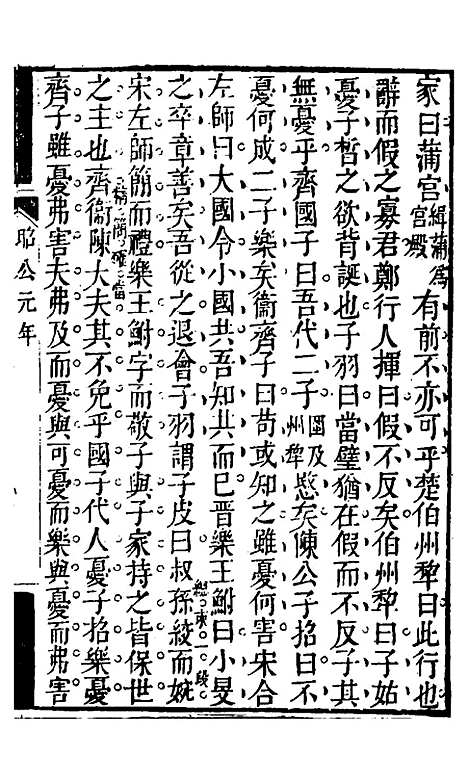 家曰蒲宮緝蒲爲宮殿有前不亦可乎楚伯州犂曰此行也
辭而假之寡君鄭行人揮曰假不反矣伯州犂曰子姑
憂子晳之欲背誕也子羽曰當璧猶在假而不反子其
無憂乎齊國子曰吾代二子圍及州犂愍矣陳公子招曰不
憂何成二子樂矣衞齊子曰苟或知之雖憂何害宋合
左師曰大國令小國共吾知共而已晉樂王鮒曰小旻
之卒章善矣吾從之退會子羽謂子皮曰叔孫絞而婉
總束一段
宋左師簡而禮樂王鮒字而敬子與子家持之皆保世
之主也齊衞陳大夫其不免乎國子代人憂子招樂憂
精簡確當
齊子雖憂弗害夫弗及而憂與可憂而樂與憂而弗害
昭公元年